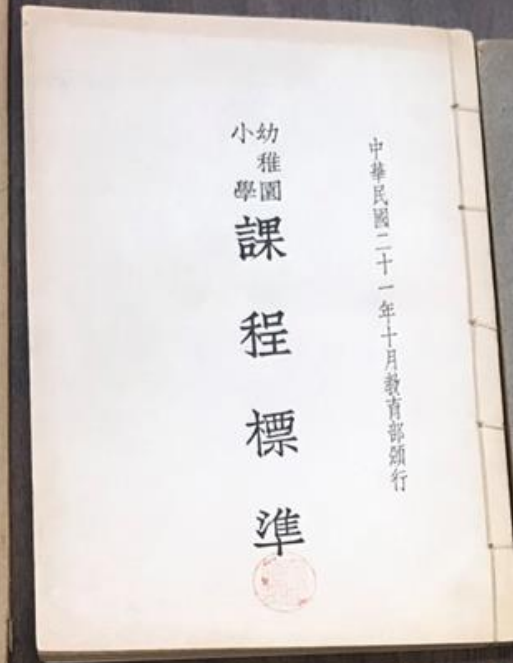 中華民國二十一年十月教育部頒行
幼稚園
小學
課程標準